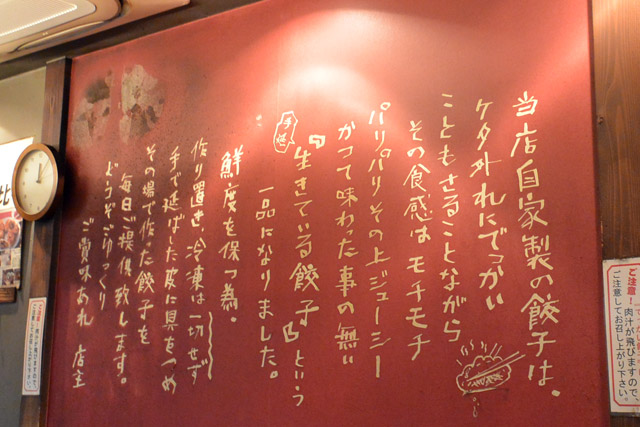 当店自家製の餃子は、
ケタ外れにでっかい
こともさることながら
その食感はモチモチ
パリパリその上ジューシー
かつて味わった事の無い
『生きている餃子』という
手燃
一品になりました。
鮮度を保つ為、
作り置き、冷凍は一切せず
手で延ばした皮に具をつめ
その場で作った餃子を
毎日ご提供致します。
どうぞごゆっくり
ご賞味あれ 店主
ご注意
肉汁が飛びますので、
ご注意してお召し上がり下さい。
ご注意
比